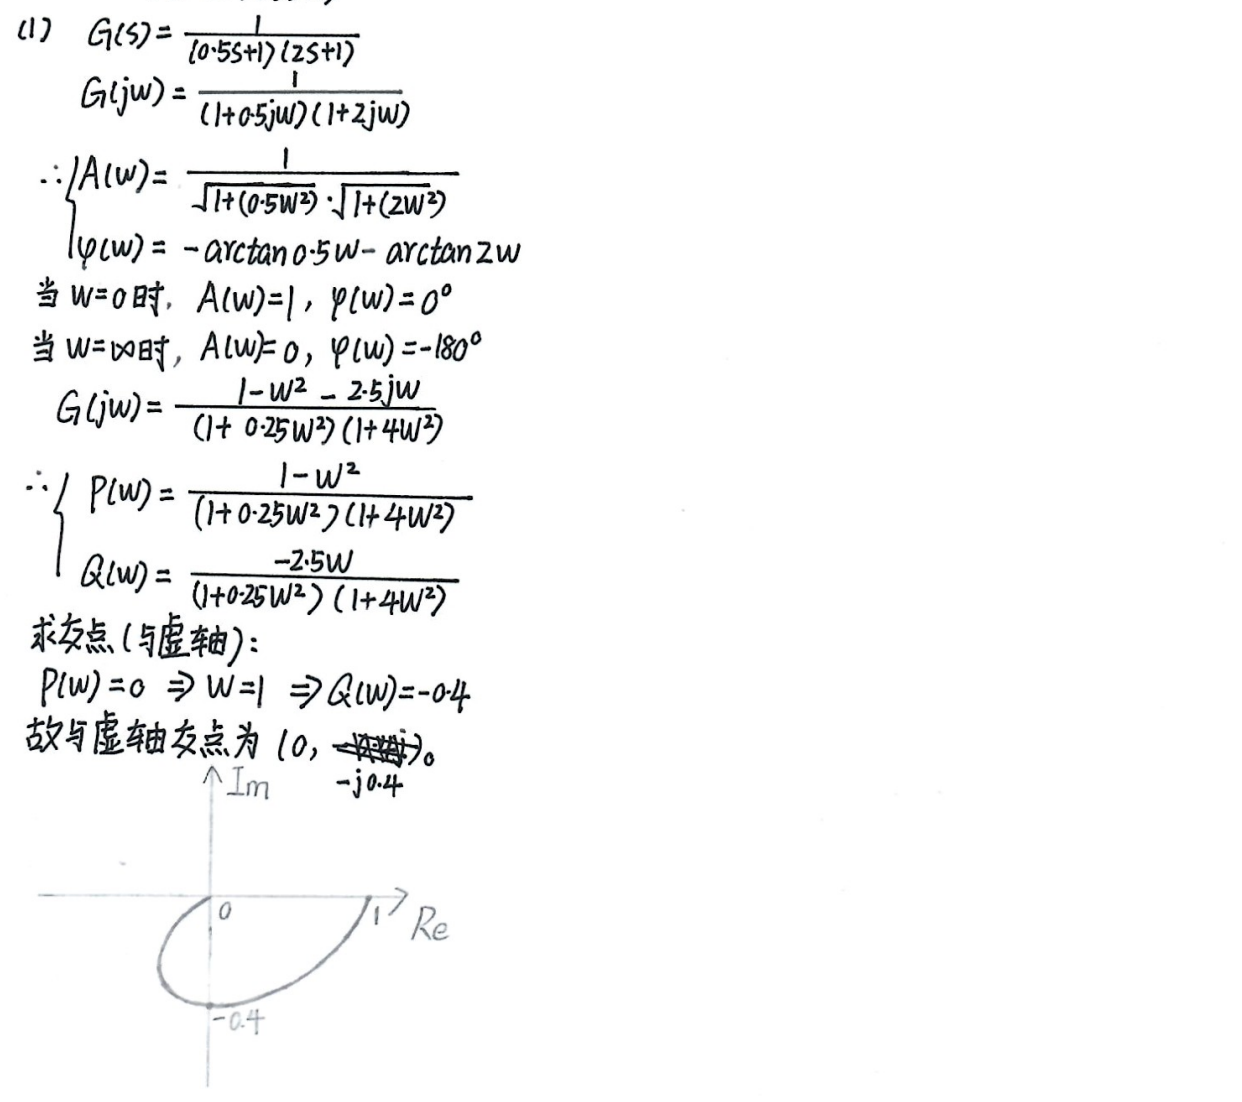 (1) G(s) = 1/((0.5s+1)(2s+1))
G(jw) = 1/((1+0.5jw)(1+2jw))
∴ { A(w) = 1/(√(1+(0.5w²)) · √(1+(2w²)))
φ(w) = -arctan0.5w - arctan2w
当 w=0时, A(w)=1, φ(w)=0°
当 w=∞时, A(w)=0, φ(w)=-180°
G(jw) = (1-w² - 2.5jw)/((1+0.25w²)(1+4w²))
∴ { P(w) = (1-w²)/((1+0.25w²)(1+4w²))
Q(w) = (-2.5w)/((1+0.25w²)(1+4w²))
求交点(与虚轴):
P(w)=0 ⇒ w=1 ⇒ Q(w)=-0.4
故与虚轴交点为 (0, )。
-j0.4
Im
0
1
Re
-0.4